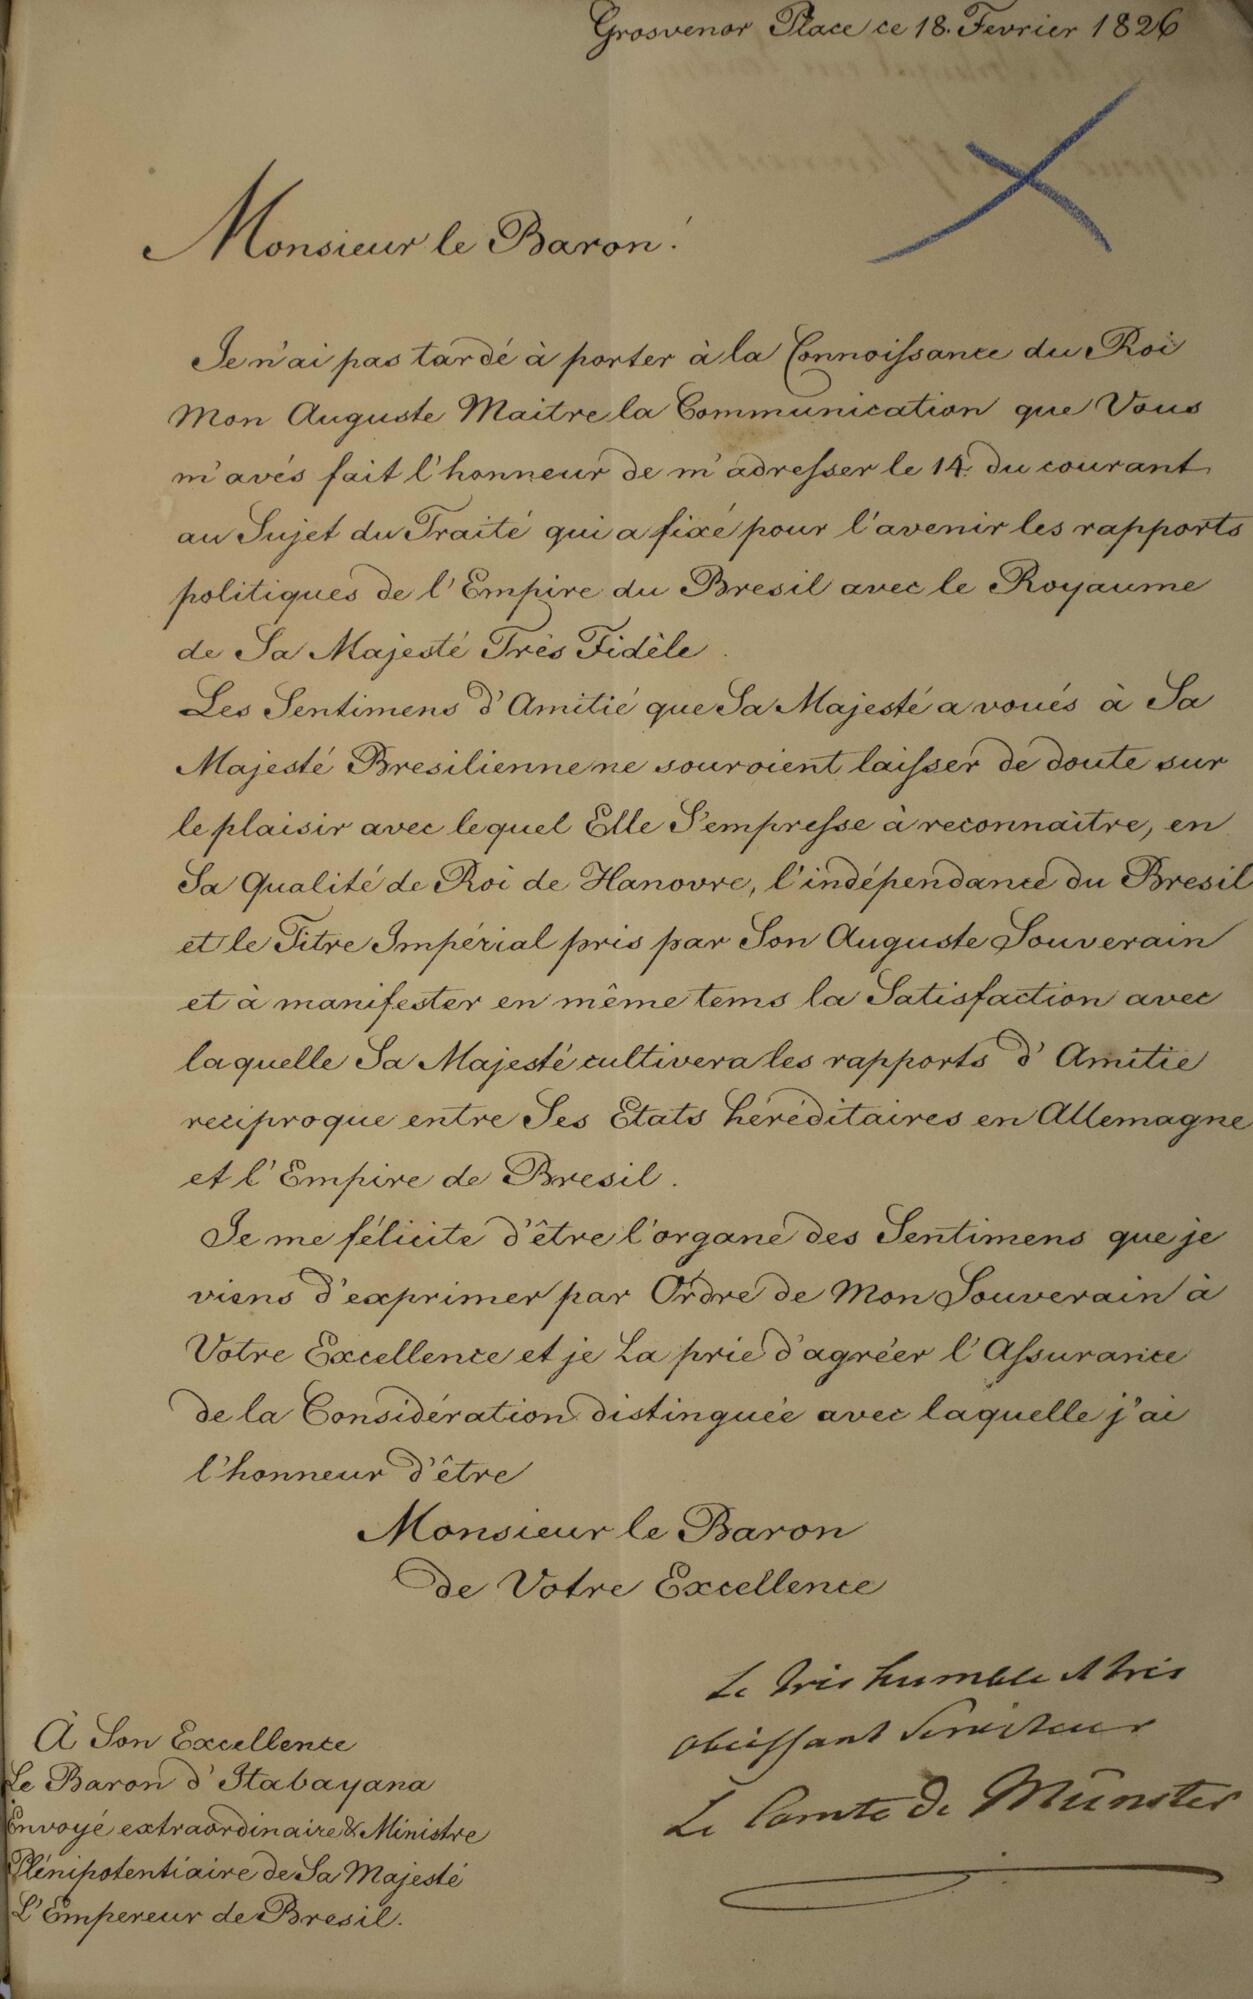 Grosvenor Place ce 18. Fevrier 1826
Monsieur le Baron!
Je n'ai pas tardé à porter à la Connoissance du Roi
Mon Auguste Maitre la Communication que Vous
m'avés fait l'honneur de m'adresser le 14. du courant
au Sujet du Traité qui a fixé pour l'avenir les rapports
politiques de l'Empire du Bresil avec le Royaume
de Sa Majesté Très Fidèle.
Les Sentimens d'Amitié que Sa Majesté a voués à Sa
Majesté Bresilienne ne souroient laisser de doute sur
le plaisir avec lequel Elle S'empresse à reconnaître, en
Sa Qualité de Roi de Hanovre, l'indépendance du Bresil
et le Titre Impérial pris par Son Auguste Souverain
et à manifester en même tems la Satisfaction avec
laquelle Sa Majesté cultivera les rapports d'Amitie
reciproque entre Ses Etats héréditaires en Allemagne
et l'Empire de Bresil.
Je me félicite d'être l'organe des Sentimens que je
viens d'exprimer par Ordre de Mon Souverain à
Votre Excellence et je La prie d'agréer l'Assurance
de la Considération distinguée avec laquelle j'ai
l'honneur d'être
Monsieur le Baron
de Votre Excellence
Le très humble et très
obéissant Serviteur
Le Comte de Münster
À Son Excellence
Le Baron d'Itabayana
Envoyé extraordinaire & Ministre
Plénipotentiaire de Sa Majesté
L'Empereur de Bresil.